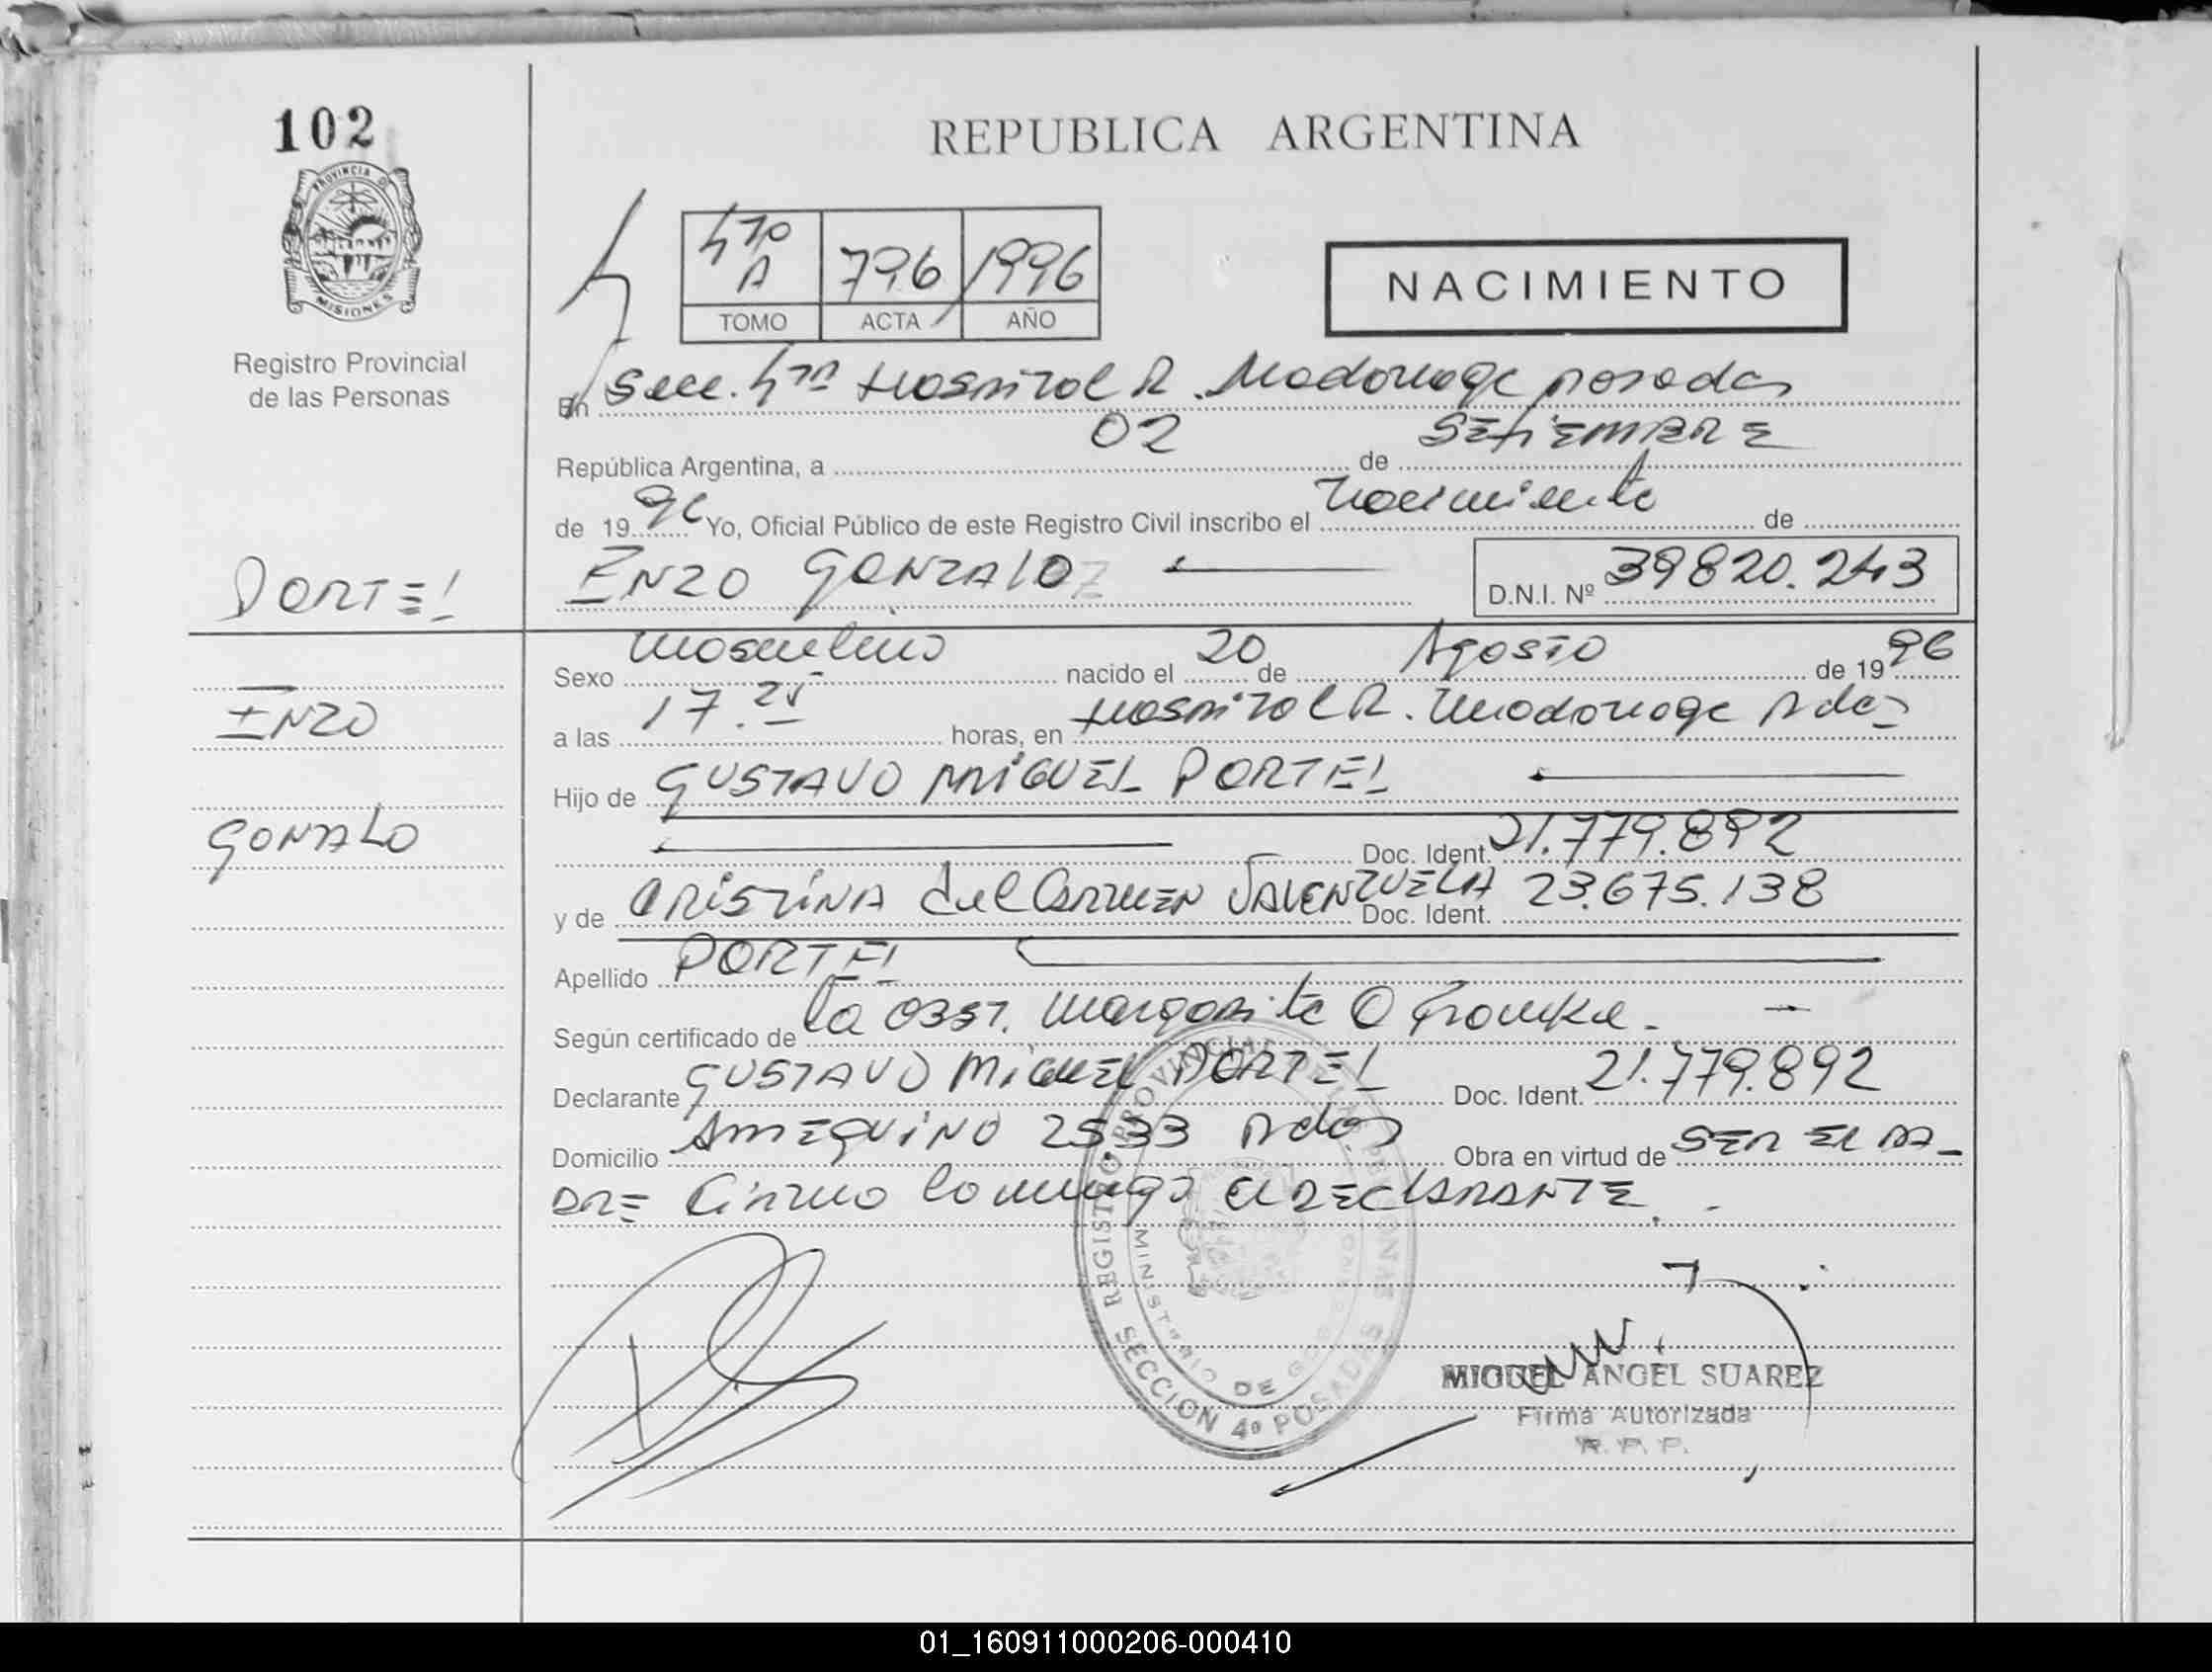 102
PROVINCIA D
MISIONES
Registro Provincial
de las Personas
REPUBLICA ARGENTINA
4to A 796 1996
TOMO ACTA AÑO
NACIMIENTO
En Secc. 4ta Hospital R. Madariaga posadas
República Argentina, a 02 de SETIEMBRE
de 1996 Yo, Oficial Público de este Registro Civil inscribo el nacimiento de
PORTEL
ENZO GONZALO
D.N.I. Nº 39820.243
ENZO
GONZALO
Sexo masculino nacido el 20 de Agosto de 1996
a las 17.25 horas, en Hospital R. Madariaga Pdas
Hijo de GUSTAVO MIGUEL PORTEL
Doc. Ident. 21.779.892
y de CRISTINA del CARMEN VALENZUELA Doc. Ident. 23.675.138
Apellido PORTEL
Según certificado de la OBST. Margarita O
Declarante GUSTAVO MIGUEL PORTEL Doc. Ident. 21.779.892
Domicilio 2533 Pdas Obra en virtud de SER EL PA-
DRE Firma conmigo el DECLARANTE.
REGISTRO PROVINCIAL DE LAS PERSONAS
MINISTERIO DE GOBIERNO
SECCION 4º POSADAS
MIGUEL ANGEL SUAREZ
Firma Autorizada
R. P. P.
01_160911000206-000410